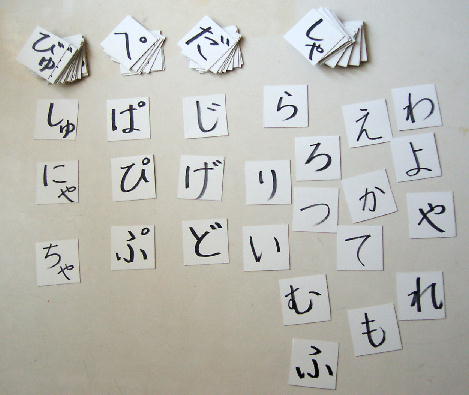 びゅ ぺ だ しゃ
しゅ ぱ じ ら え わ
にゃ ぴ げ り ろ か よ
ちゃ ぷ ど い つ て や
む も れ
ふ